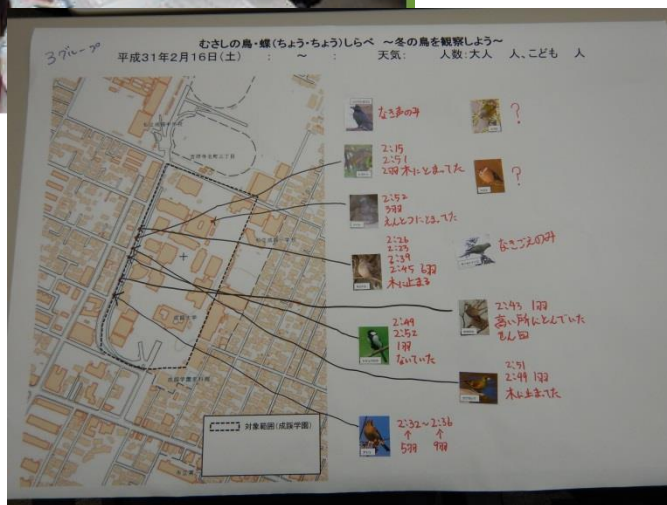 3グループ
むさしの鳥・蝶(ちょう・ちょう)しらべ ～冬の鳥を観察しよう～
平成31年2月16日(土)　：　～　：　天気：　人数:大人　人、こども　人
なき声のみ
?
2:15
2:51
2羽 木にとまってた
?
2:52
3羽
えんとつにとまってた
2:26
2:23
2:39
2:45 6羽
木に止まる
なきごえのみ
2:43 1羽
高い所にとんでいた
2:49
2:52
1羽
ないていた
2:51
2:44 1羽
木に止まってた
2:32～2:36
↑ ↑
5羽 9羽
吉祥寺北町三丁目
成蹊大学
対象範囲(成蹊学園)